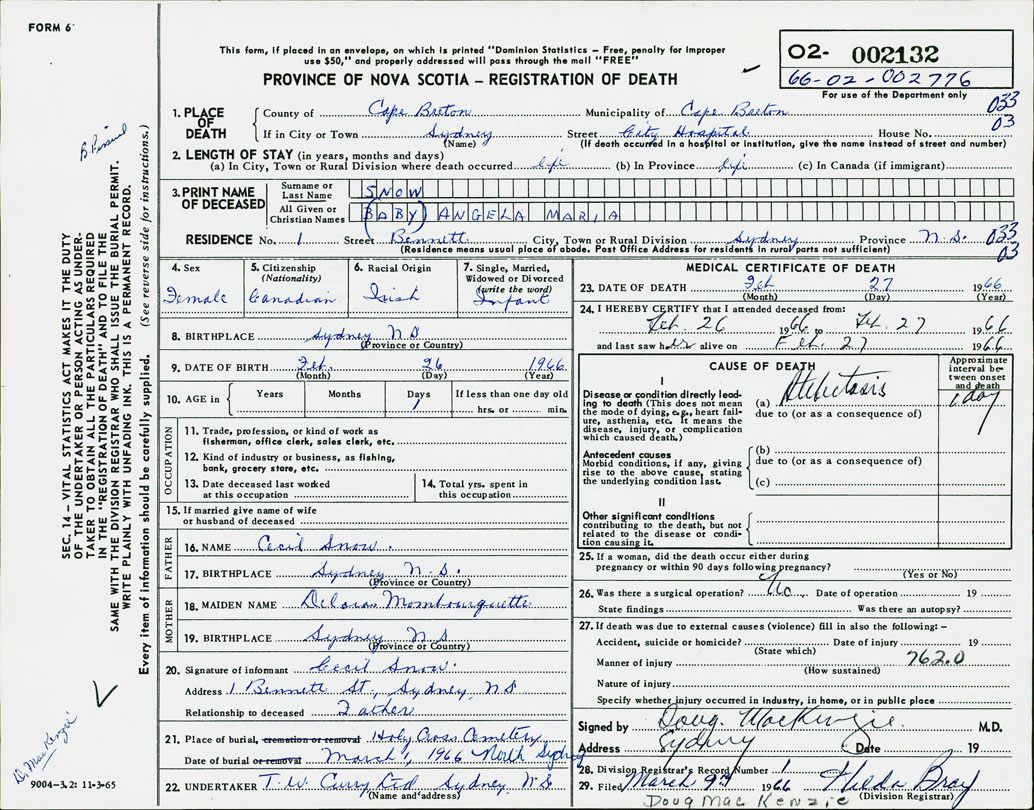 FORM 6
This form, if placed in an envelope, on which is printed "Dominion Statistics – Free, penalty for improper
use $50," and properly addressed will pass through the mail "FREE"
PROVINCE OF NOVA SCOTIA – REGISTRATION OF DEATH
O2- 002132
66-02-002776
For use of the Department only
1. PLACE OF DEATH
County of Cape Breton Municipality of Cape Breton 033
If in City or Town Sydney Street City Hospital House No. 03
(Name) (If death occurred in a hospital or institution, give the name instead of street and number)
2. LENGTH OF STAY (in years, months and days)
(a) In City, Town or Rural Division where death occurred life (b) In Province life (c) In Canada (if immigrant)
3. PRINT NAME OF DECEASED
Surname or Last Name SNOW
All Given or Christian Names (BABY) ANGELA MARIA
RESIDENCE No. 1 Street Bennett City, Town or Rural Division Sydney Province N.S. 033
03
(Residence means usual place of abode. Post Office Address for residents in rural parts not sufficient)
4. Sex
Female
5. Citizenship
(Nationality)
Canadian
6. Racial Origin
Irish
7. Single, Married,
Widowed or Divorced
(write the word)
Infant
8. BIRTHPLACE Sydney N S
(Province or Country)
9. DATE OF BIRTH Feb. 26 1966
(Month) (Day) (Year)
10. AGE in
Years
Months
Days
1
If less than one day old
hrs. or min.
OCCUPATION
11. Trade, profession, or kind of work as
fisherman, office clerk, sales clerk, etc.
12. Kind of industry or business, as fishing,
bank, grocery store, etc.
13. Date deceased last worked
at this occupation
14. Total yrs. spent in
this occupation
15. If married give name of wife
or husband of deceased
FATHER
16. NAME Cecil Snow.
17. BIRTHPLACE Sydney N.S.
(Province or Country)
MOTHER
18. MAIDEN NAME Deloras Mombourquette
19. BIRTHPLACE Sydney N S
(Province or Country)
20. Signature of informant Cecil Snow.
Address 1 Bennett St., Sydney, N S
Relationship to deceased Father
21. Place of burial, cremation or removal Holy Cross Cemetery
Date of burial or removal March 1, 1966 North Sydney
22. UNDERTAKER T. W. Curry Ltd Sydney N S
(Name and address)
MEDICAL CERTIFICATE OF DEATH
23. DATE OF DEATH Feb 27 1966
(Month) (Day) (Year)
24. I HEREBY CERTIFY that I attended deceased from:
Feb. 26 1966 to Feb. 27 1966
and last saw her alive on Feb. 27 1966
CAUSE OF DEATH
Approximate
interval be-
tween onset
and death
I
Disease or condition directly lead-
ing to death (This does not mean
the mode of dying, e.g., heart fail-
ure, asthenia, etc. It means the
disease, injury, or complication
which caused death.)
(a) Atelectasis 1 day
due to (or as a consequence of)
Antecedent causes
Morbid conditions, if any, giving
rise to the above cause, stating
the underlying condition last.
(b)
due to (or as a consequence of)
(c)
II
Other significant conditions
contributing to the death, but not
related to the disease or condi-
tion causing it.
25. If a woman, did the death occur either during
pregnancy or within 90 days following pregnancy?
(Yes or No)
26. Was there a surgical operation? No. Date of operation 19
State findings Was there an autopsy?
27. If death was due to external causes (violence) fill in also the following: –
Accident, suicide or homicide? Date of injury 19
(State which)
Manner of injury 762.0
(How sustained)
Nature of injury
Specify whether injury occurred in industry, in home, or in public place
Signed by Doug. MacKenzie. M.D.
Address Sydney Date 19
28. Division Registrar's Record Number 1
29. Filed March 9 1966 Hilda Bray
(Division Registrar)
Doug Mac Kenzie
SEC. 14 – VITAL STATISTICS ACT MAKES IT THE DUTY
OF THE UNDERTAKER OR PERSON ACTING AS UNDER-
TAKER TO OBTAIN ALL THE PARTICULARS REQUIRED
IN THE "REGISTRATION OF DEATH" AND TO FILE THE
SAME WITH THE DIVISION REGISTRAR WHO SHALL ISSUE THE BURIAL PERMIT.
WRITE PLAINLY WITH UNFADING INK. THIS IS A PERMANENT RECORD.
Every item of information should be carefully supplied. (See reverse side for instructions.)
D. MacKenzie
9004-3.2: 11-3-65